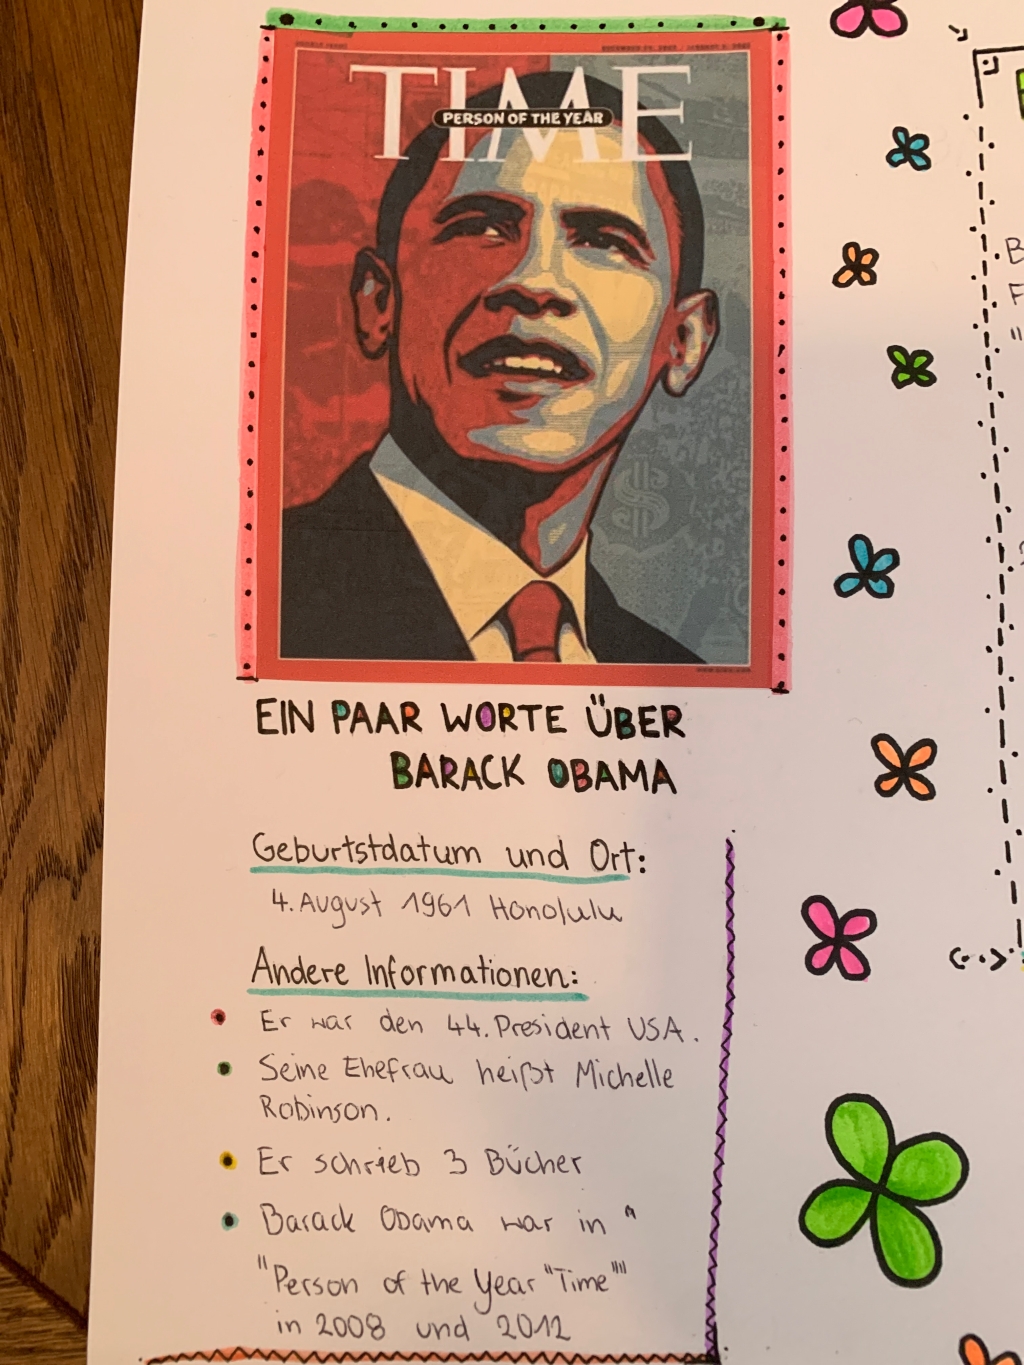 TIME
PERSON OF THE YEAR
EIN PAAR WORTE ÜBER
BARACK OBAMA
Geburtstdatum und Ort:
4. August 1961 Honolulu
Andere Informationen:
Er war den 44. President USA.
Seine Ehefrau heißt Michelle
Robinson.
Er schrieb 3 Bücher
Barack Obama war in "
"Person of the Year "Time""
in 2008 und 2012